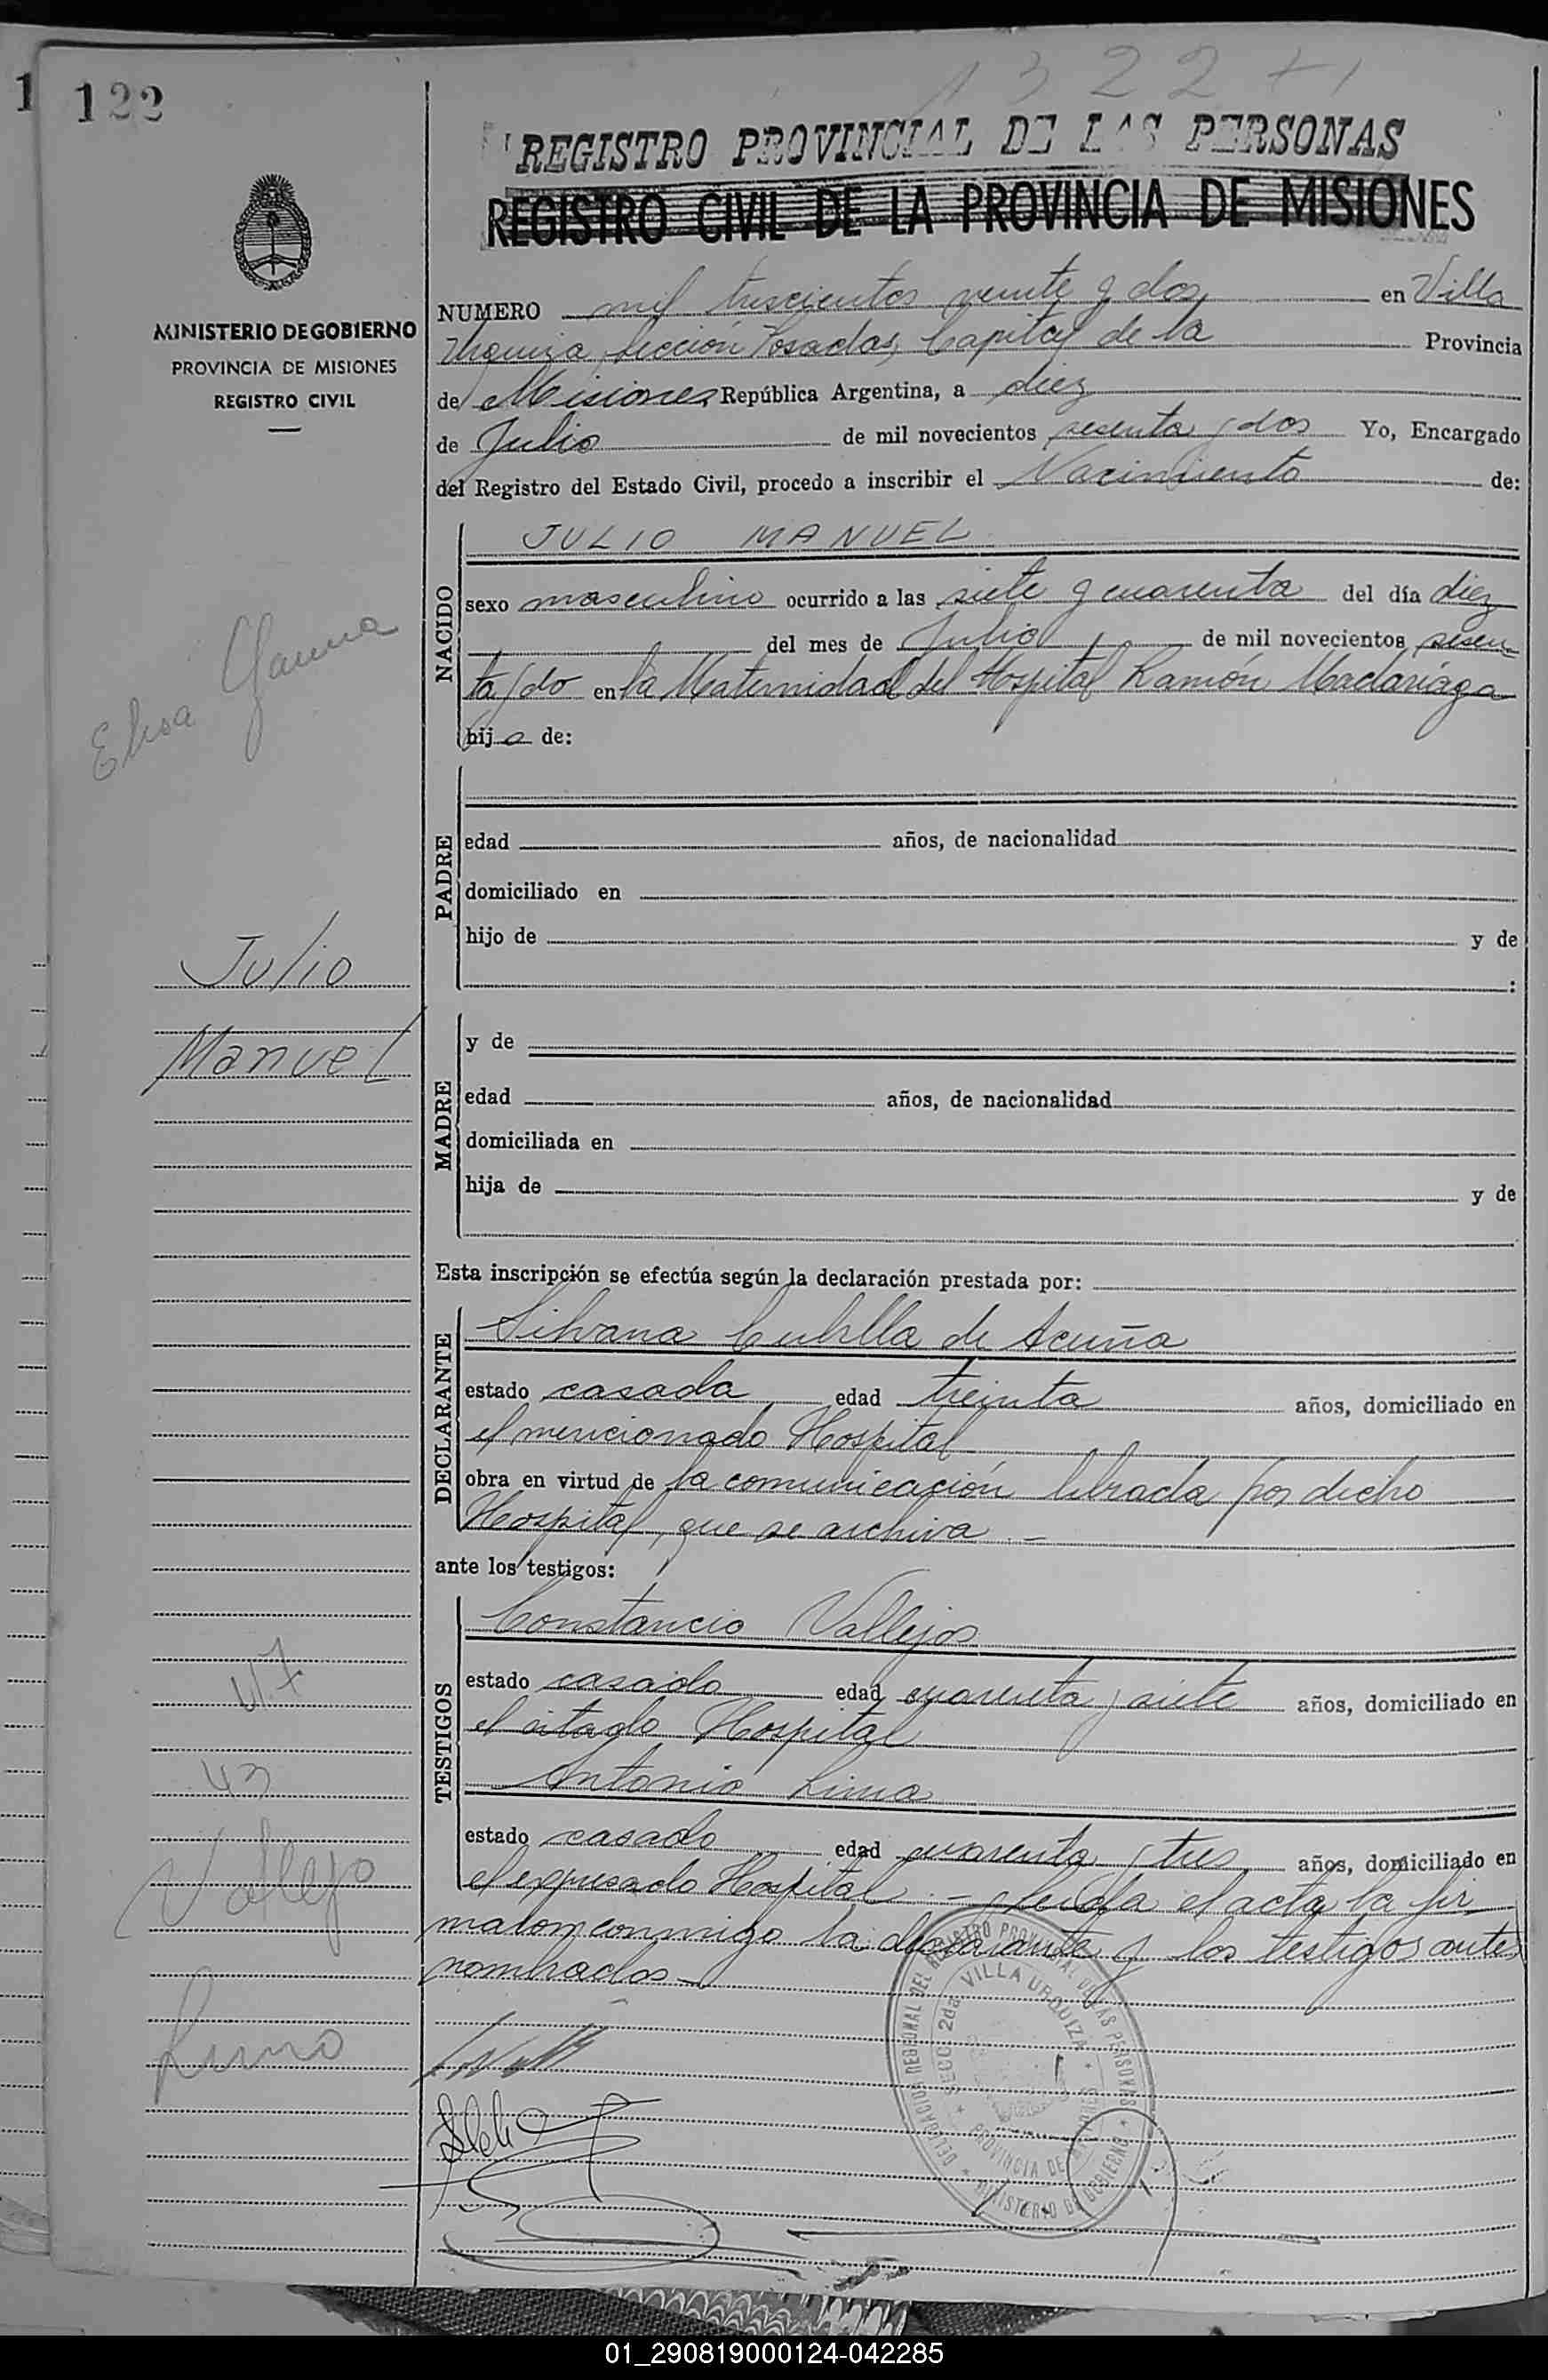 122
1322
REGISTRO PROVINCIAL DE LAS PERSONAS
REGISTRO CIVIL DE LA PROVINCIA DE MISIONES
MINISTERIO DE GOBIERNO
PROVINCIA DE MISIONES
REGISTRO CIVIL
NUMERO mil trescientos veinte y dos en Villa
Urquiza, Sección Posadas, Capital de la Provincia
de Misiones, República Argentina, a diez
de Julio de mil novecientos sesenta y dos Yo, Encargado
del Registro del Estado Civil, procedo a inscribir el Nacimiento de:
NACIDO
JULIO MANUEL
sexo masculino ocurrido a las siete y cuarenta del día diez
del mes de Julio de mil novecientos sesen
ta y do en la Maternidad del Hospital Ramón Madariaga
hijo de:
Elisa
PADRE
edad años, de nacionalidad
domiciliado en
hijo de y de
:
Julio
Manuel
MADRE
y de
edad años, de nacionalidad
domiciliada en
hija de y de
Esta inscripción se efectúa según la declaración prestada por:
DECLARANTE
Silvana Cubilla de Acuña
estado casada edad treinta años, domiciliado en
el mencionado Hospital
obra en virtud de la comunicación librada por dicho
Hospital, que se archiva.-
ante los testigos:
TESTIGOS
Constancio Vallejos
estado casado edad cuarenta y siete años, domiciliado en
el citado Hospital
Antonio Lima
estado casado edad cuarenta y tres años, domiciliado en
el expresado Hospital.- Leída el acta la fir
maron conmigo la declarante y los testigos ante
nombrados.-
47
43
Vallejo
Lima
DELEGACION REGIONAL DEL REGISTRO PROVINCIAL DE LAS PERSONAS
SECC. 2da. VILLA URQUIZA
PROVINCIA DE MISIONES
MINISTERIO DE GOBIERNO
01_290819000124-042285